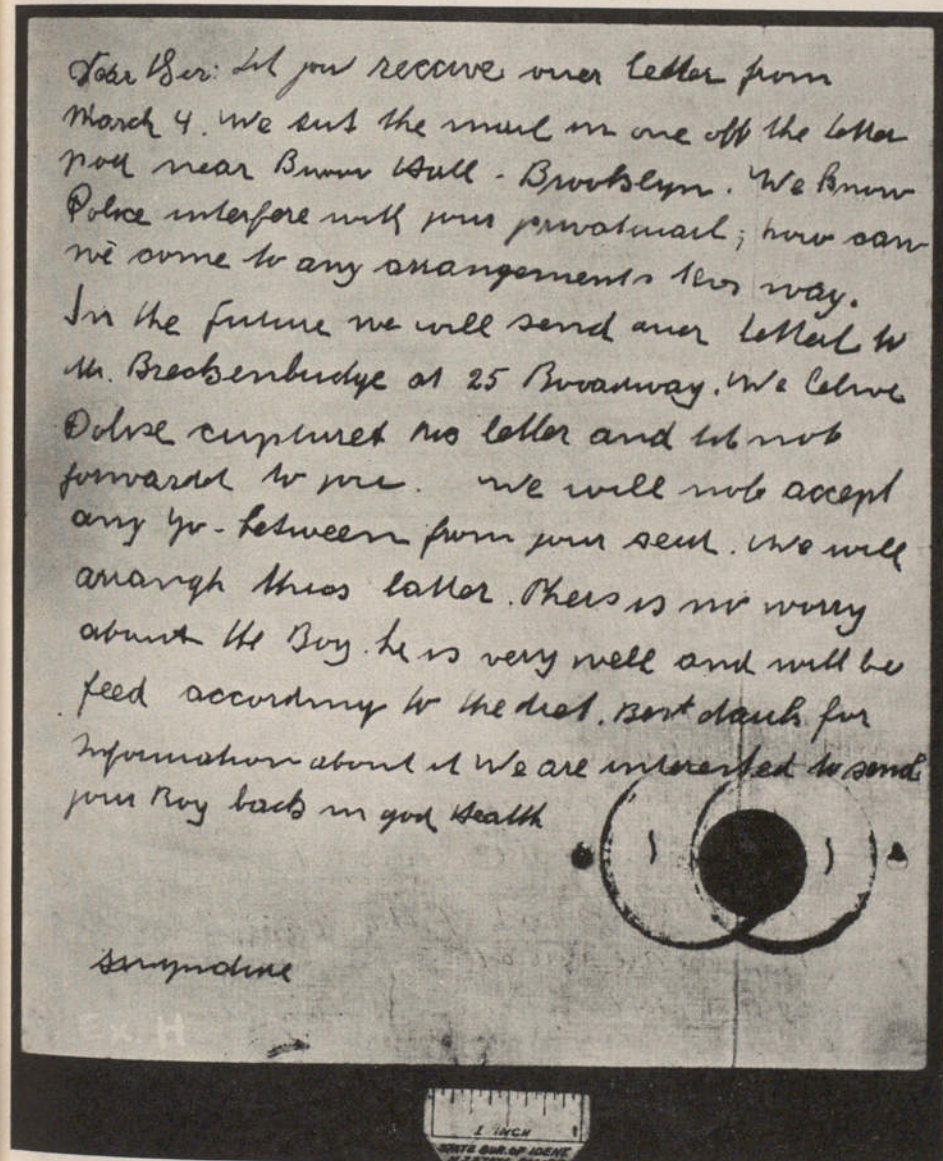 Dear Sir: Dit you receive ouer letter from
March 4. We sent the mail in one off the letter
pox near Burro Hall - Brooklyn. We know
Police interfere with your privatmail; how can
we come to any arrangements this way.
In the future we will send ouer letters to
Mr. Breckenbridge at 25 Broadway. We belive
Polise capturet two letter and dit not
forwardet to you. We will not accept
any go-between from your seid. We will
arrangh thiss latter. There is no worry
about the Boy. he is very well and will be
feed according to the diet. Best dank for
Information about it We are interested to send
your Boy back in gud Health
singnature
Ex. H
1 INCH
STATE BUR. OF IDENT.